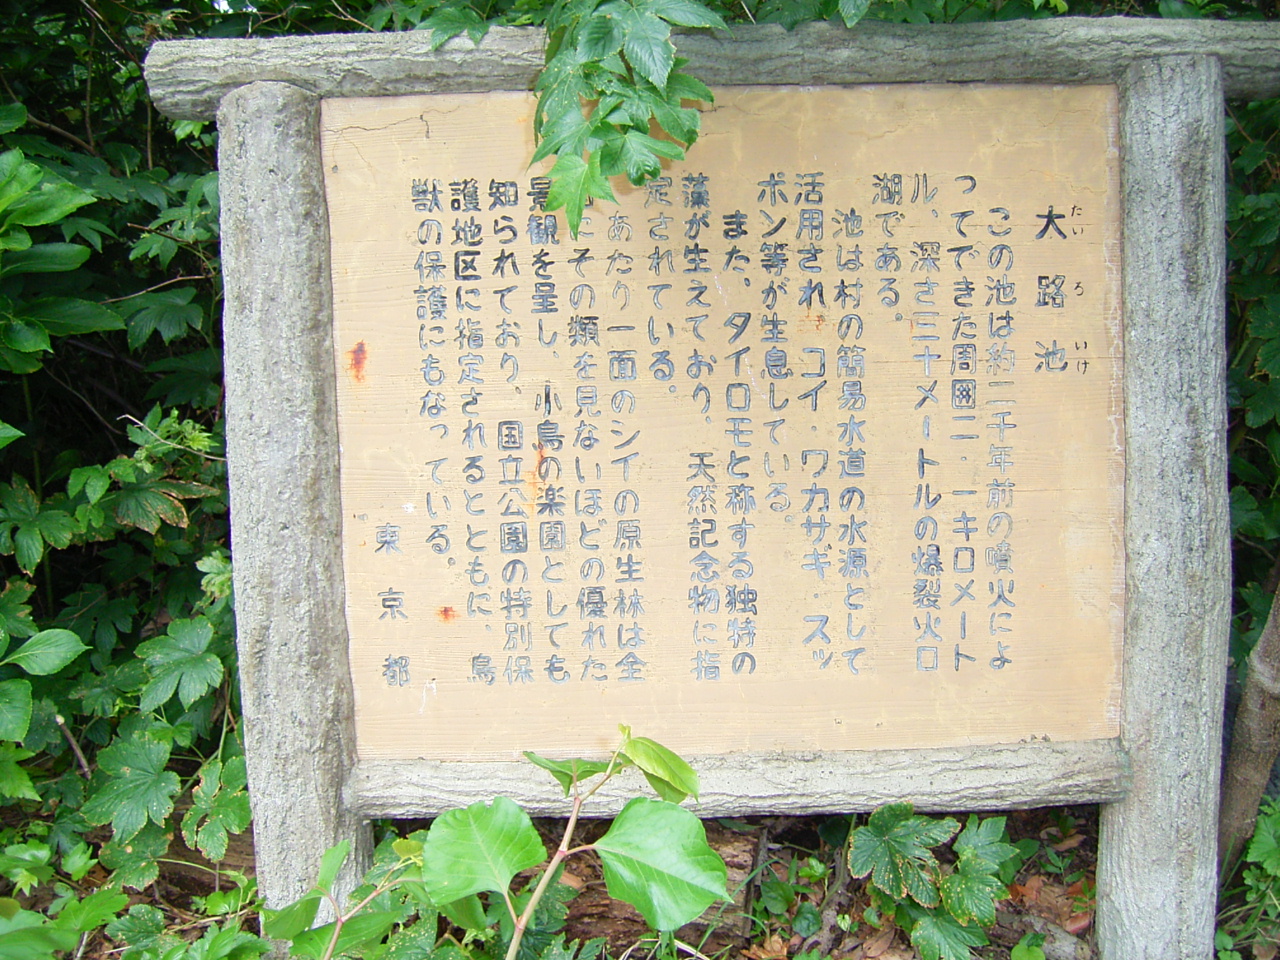 大路池
たいろいけ
この池は約二千年前の噴火によ
ってできた周囲二.一キロメート
ル、深さ三十メートルの爆裂火口
湖である。
池は村の簡易水道の水源として
活用され、コイ・ワカサギ・スッ
ポン等が生息している。
また、タイロモと称する独特の
藻が生えており、天然記念物に指
定されている。
あたり一面のシイの原生林は全
にその類を見ないほどの優れた
景観を呈し、小鳥の楽園としても
知られており、国立公園の特別保
護地区に指定されるとともに、鳥
獣の保護にもなっている。
東京都